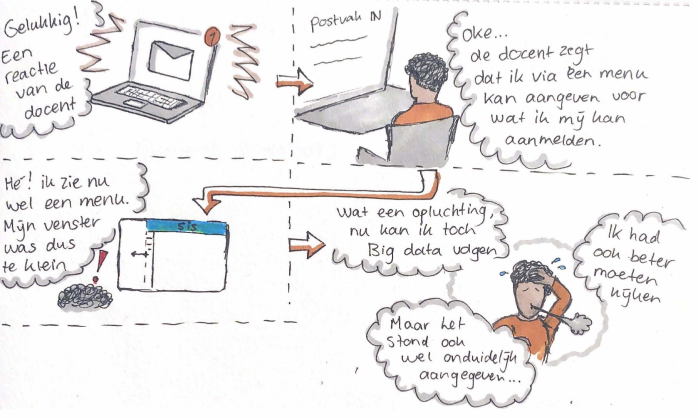 Gelukkig!
Een
reactie
van de
docent
1
Postvak IN
Oke...
de docent zegt
dat ik via een menu
kan aangeven voor
wat ik mij kan
aanmelden.
Hé! ik zie nu
wel een menu.
Mijn venster
was dus
te klein
!
SiS
Wat een opluchting,
nu kan ik toch
Big data volgen
Ik had
ook beter
moeten
kijken
Maar het
stond ook
wel onduidelijk
aangegeven...